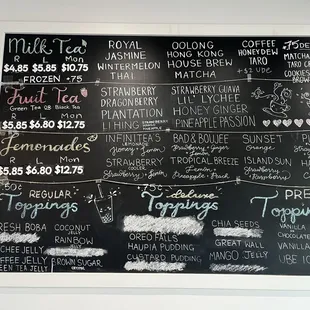 Milk Tea
R L Mon
$4.85 $5.85 $10.75
FROZEN +75
ROYAL
JASMINE
WINTERMELON
THAI
OOLONG
HONG KONG
HOUSE BREW
MATCHA
COFFEE
HONEYDEW
TARO
MATCHA
TARO
COOKIES
BROWN
Fruit Tea
Green Tea OR Black Tea
R L Mon
$5.85 $6.80 $12.75
STRAWBERRY
DRAGONBERRY
PLANTATION
LI HING
STRAWBERRY GUAVA
LIL' LYCHEE
HONEY GINGER
PINEAPPLE PASSION
Lemonades
R L Mon
$5.85 $6.80 $12.75
INFINITEA'S
Honey Lemon
STRAWBERRY
COOLER
Strawberry Lemon
BAD & BOUJEE
Strawberry + Ginger
Lemon
TROPICAL BREEZE
Lemon +
Pineapple Punch
SUNSET
ISLAND SUN
Strawberry
ORANGE
STRAWBERRY
50¢ REGULAR
Toppings
FRESH BOBA
COFFEE JELLY
GREEN TEA JELLY
COCONUT
JELLY
RAINBOW
JELLY
BROWN SUGAR
75¢ Deluxe
Toppings
OREO FALLS
HAUPIA PUDDING
CUSTARD PUDDING
CHIA SEEDS
GREAT WALL
MANGO JELLY
Toppings
VANILLA
CHOCOLATE
VANILLA
UBE